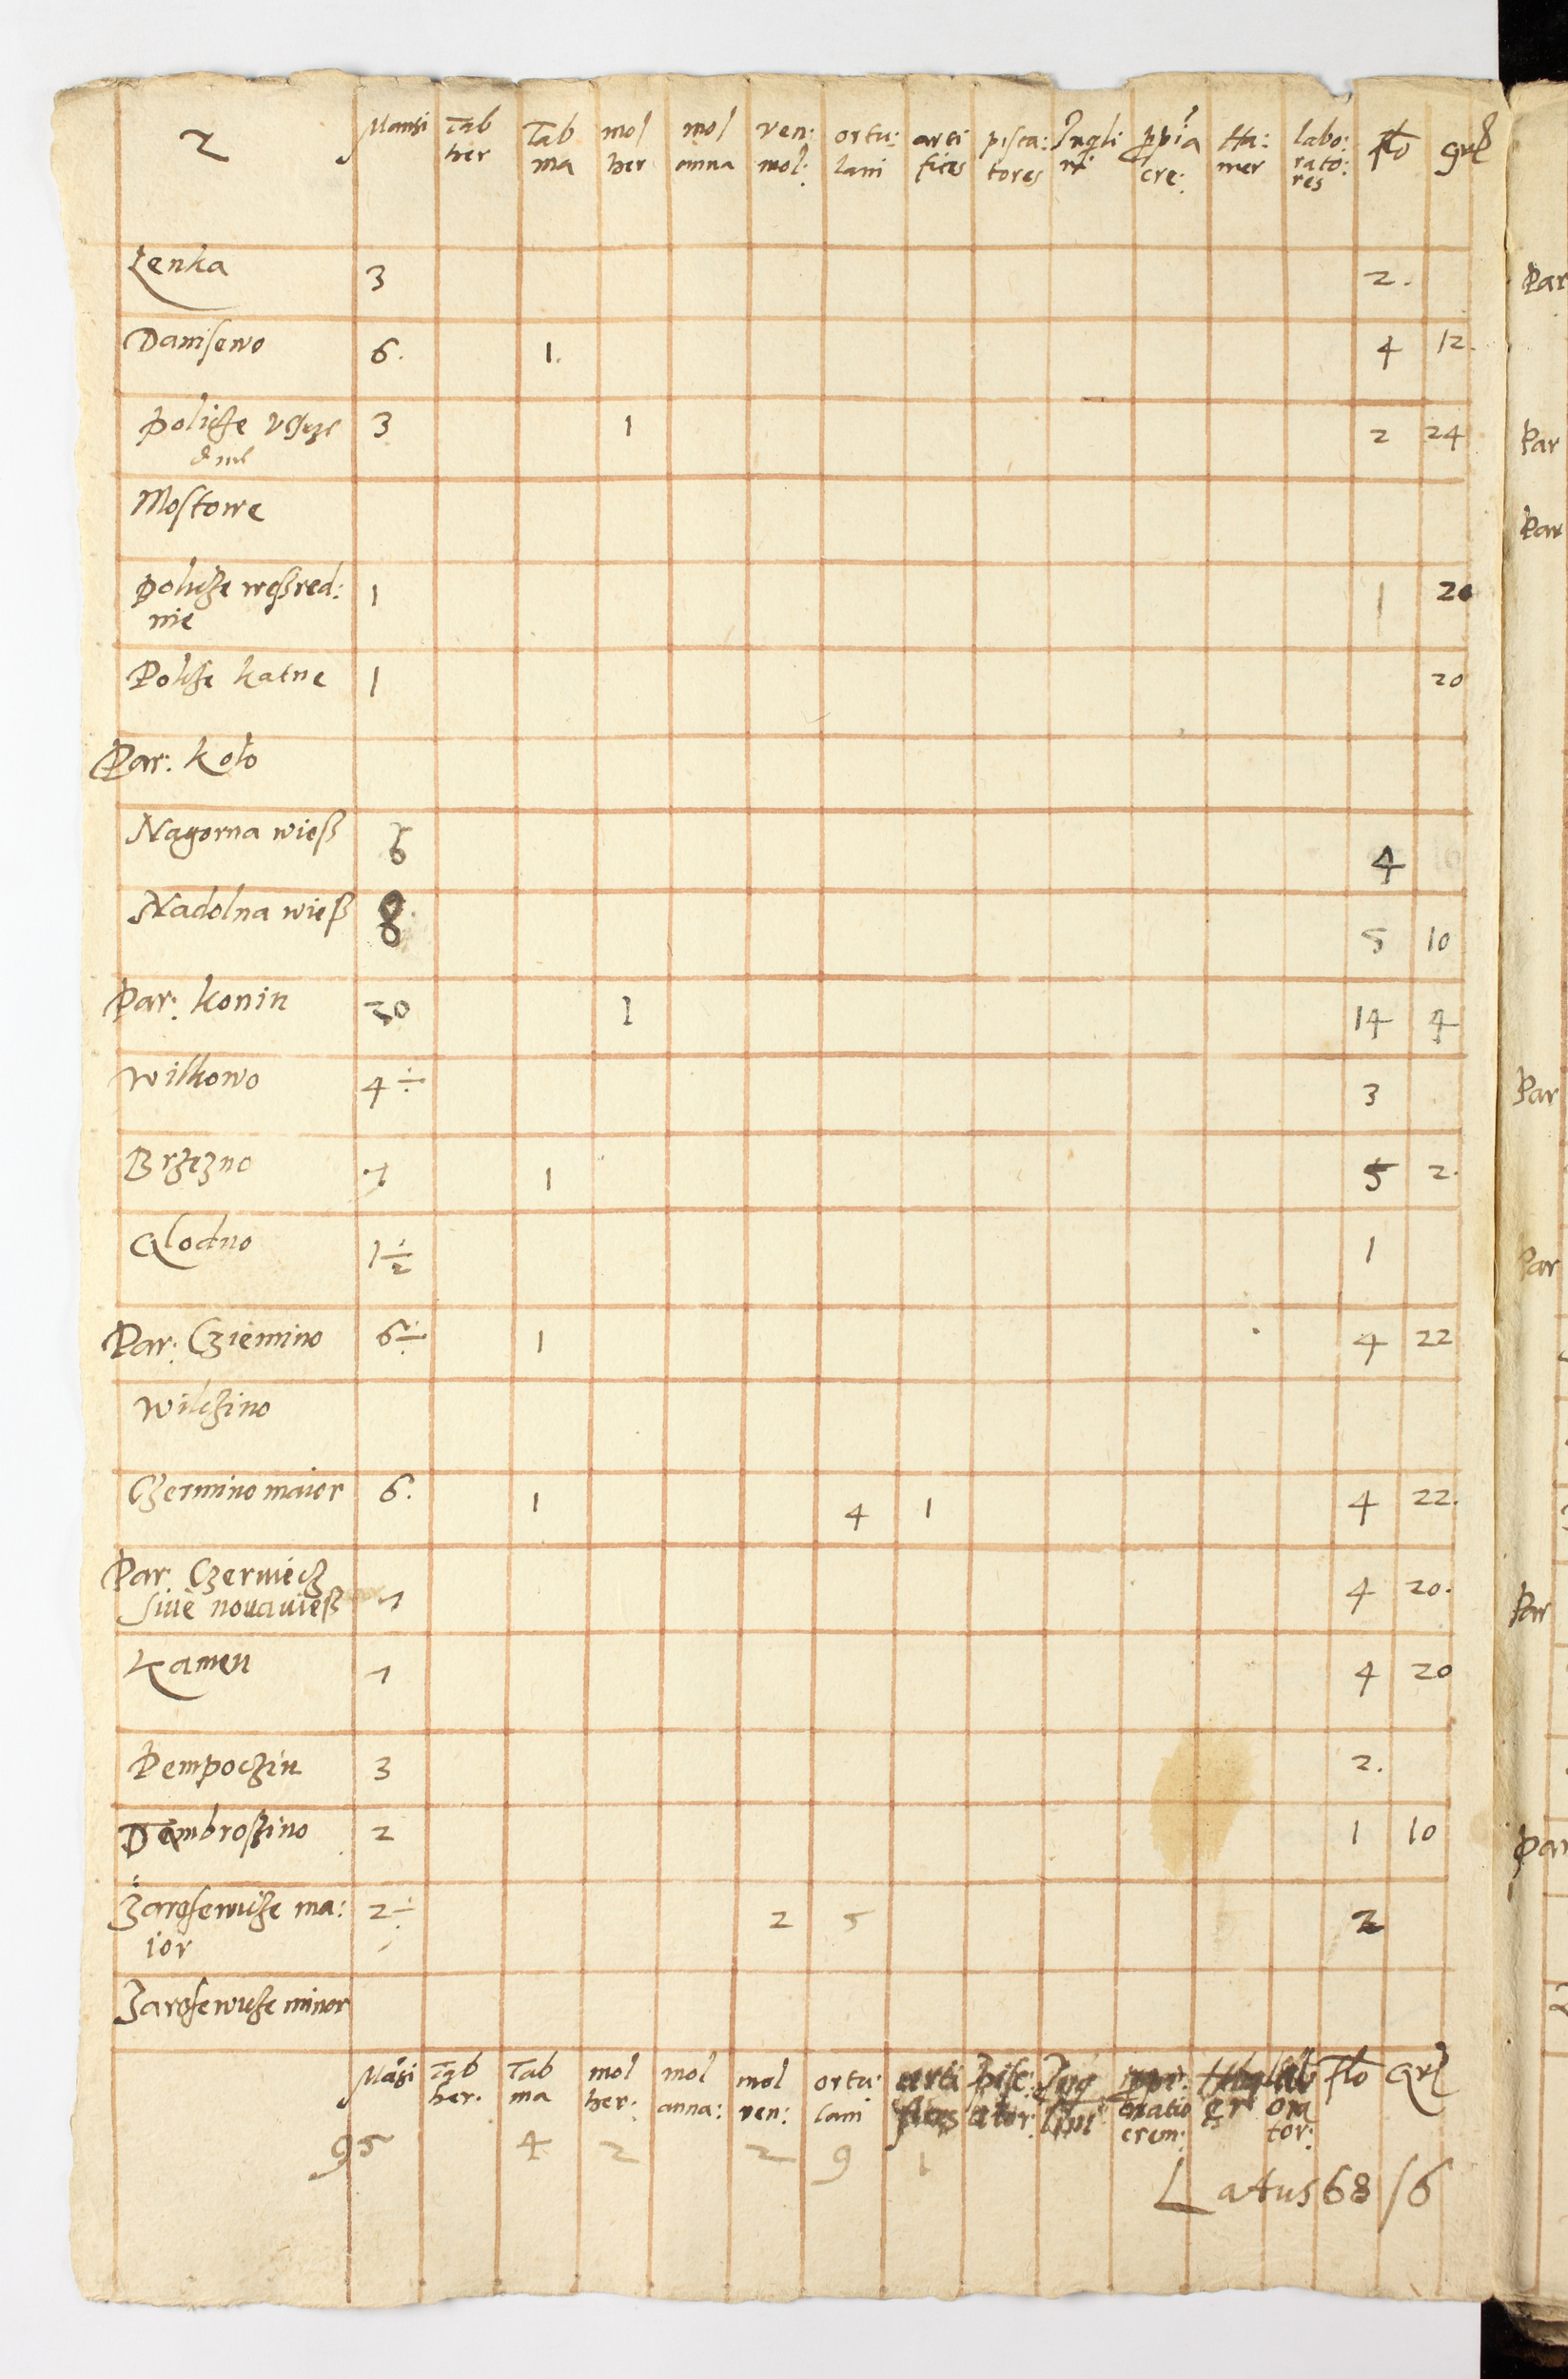 2 Mansi Tab her Tab ma mol her mol anna ven: mol: ortu: lani arti fices pisca: tores Inquili ni ppia cre: Ha: mer labo: rato: res flo grl
Lenka 3 2.
Danisewo 6. 1. 4 12.
policze 3 1 2 24
Mostowe
policze weszred: 1 1 20
nie
Policze katne 1 20
Par: Koło
Nagorna wieß 6 4
Nadolna wieß 8 5 10
Par: Konin 20 1 14 4
Wilkowo 4 ÷ 3
Brzezno 7 1 5 2.
Glodno 1 ½ 1
Par: Cziemino 6 ÷ 1 4 22
Wilczino
Czermino maior 6. 1 4 1 4 22.
Par. Czermicz
siue nouawieß 7 4 20.
Kamen 7 4 20
Pempoczin 3 2.
Dambroszino 2 1 10
Zarosewicze ma: 2 ÷ 2 5 2
ior
Zarosewicze minor
Mãsi Tab her. Tab ma mol her: mol anna: mol ven: ortu: lani arti fices pisc: ator: flo Grl
95 4 2 2 9 1
Latus 68 16
Par
Par
Par
Par
Par
Par
Par